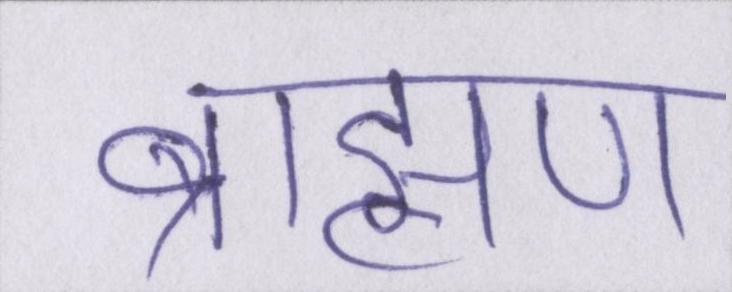 ब्राह्मण